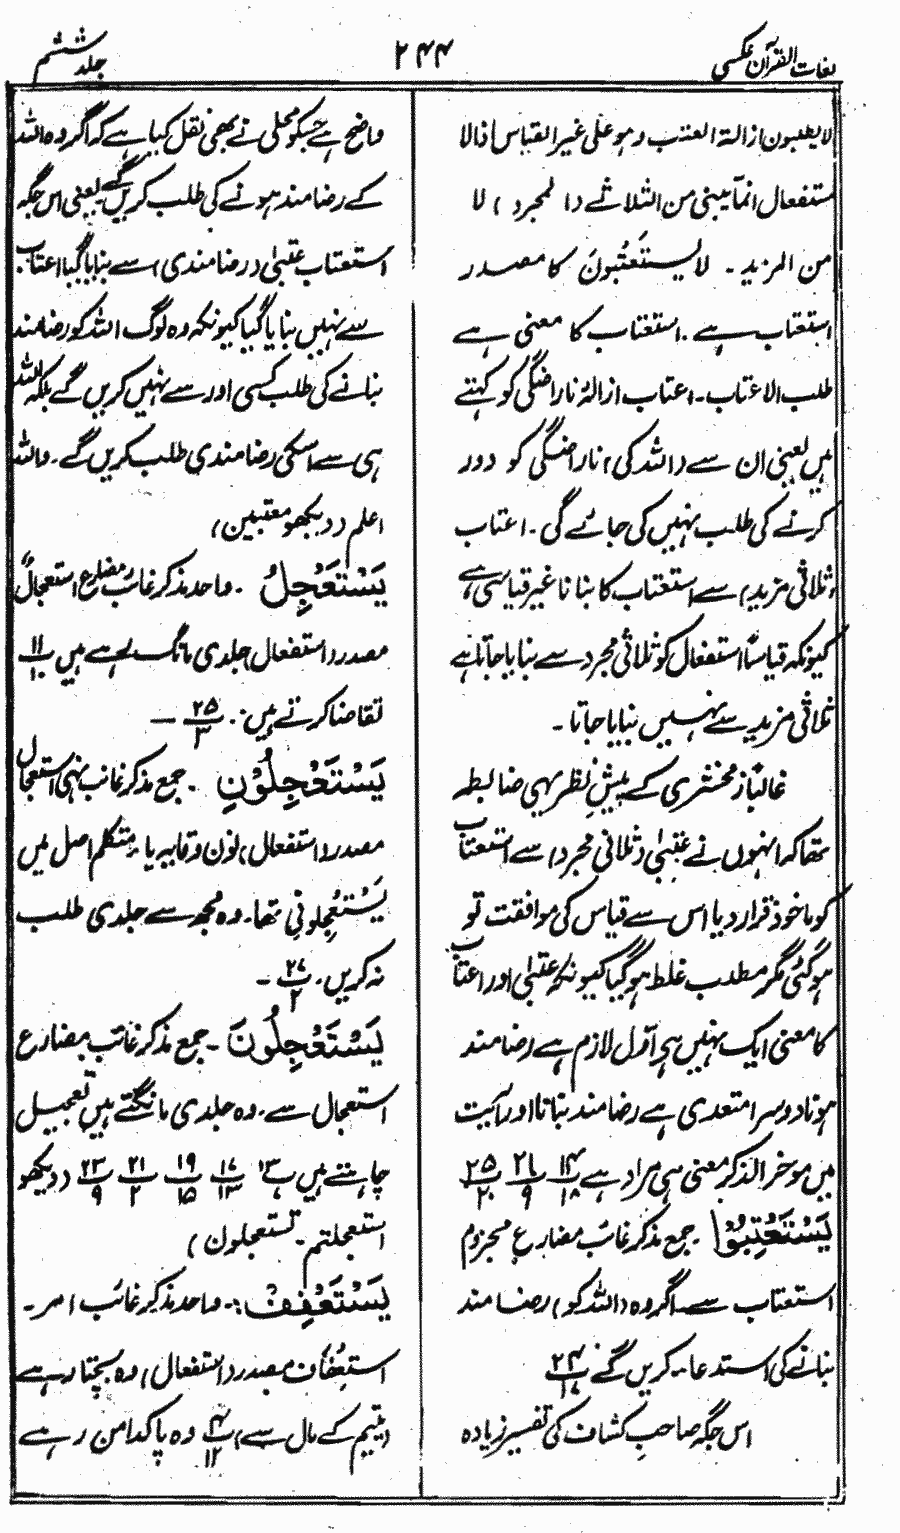 لغات القرآن عکسی
۲۴۴
جلد ششم
لا یطلبون ازالۃ العتب وهو علی غیر القیاس اذ الا
ستفعال انمآ یبنی من الثلاثے د( لمجرد ) لا
من المزید ۔ لا یَستَعْتِبُونَ کا مصدر
استعتاب ہے ۔ استعتاب کا معنی ہے
طلب الاعتاب ۔ اعتاب ازالۂ ناراضگی کو کہتے
ہیں یعنی ان سے (اللہ کی) ناراضگی کو دور
کرنے کی طلب نہیں کی جائے گی ۔ اعتاب
(ثلاثی مزید) سے استعتاب کا بنانا غیر قیاسی ہے
کیونکہ قیاساً استفعال کو ثلاثی مجرد سے بنایا جاتا ہے
ثلاثی مزید سے نہیں بنایا جاتا ۔
غالباً زمخشری کے پیشِ نظر یہی ضابطہ
تھا کہ انہوں نے عتبیٰ (ثلاثی مجرد) سے استعتاب
کو ماخوذ قرار دیا اس سے قیاس کی موافقت تو
ہو گئی مگر مطلب غلط ہو گیا کیونکہ عتبیٰ اور اعتاب
کا معنی ایک نہیں ہے اوّل لازم ہے رضا مند
ہونا دوسرا متعدی ہے رضا مند بنانا اور آیت
میں موخر الذکر معنی ہی مراد ہے ۱۴/۱۸ ۲۱/۹ ۲۵/۲۰
یَسْتَعْتِبُوْا ۔ جمع مذکر غائب مضارع مجزوم
استعتاب سے ۔ اگر وہ (اللہ کو) رضا مند
بنانے کی استدعا ۔ کریں گے ۲۴/۱۷
اس جگہ صاحبِ کشاف کی تفسیر زیادہ
واضح ہے جسکو محلی نے بھی نقل کیا ہے کہ اگر وہ اللہ
کے رضا مند ہونے کی طلب کریں گے ۔ یعنی اس جگہ
استعتاب عتبیٰ (رضا مندی) سے بنایا گیا اعتاب
سے نہیں بنایا گیا کیونکہ وہ لوگ اللہ کو رضا مند
بنانے کی طلب کسی اور سے نہیں کریں گے بلکہ اللہ
ہی سے اسکی رضا مندی طلب کریں گے ۔ واللہ
اعلم (دیکھو معتبین)
یَسْتَعْجِلُ ۔ واحد مذکر غائب مضارع استعجالٌ
مصدر (استفعال) جلدی مانگ رہے ہیں ۱۱/۱۰
تقاضا کرتے ہیں ۔ ۲۵/۳ —
یَسْتَعْجِلُوْنِ ۔ جمع مذکر غائب نہی استعجال
مصدر (استفعال) نون وقایہ یا ۔ متکلم اصل میں
یَسْتَعْجِلونِی تھا ۔ وہ مجھ سے جلدی طلب
نہ کریں ۔ ۲۷/۲ ۔
یَسْتَعْجِلُونَ ۔ جمع مذکر غائب مضارع
استعجال سے ۔ وہ جلدی مانگتے ہیں تعجیل
چاہتے ہیں ۱۳/۷ ۱۷/۱۳ ۱۹/۱۵ ۲۱/۲ ۲۳/۹ (دیکھو
استعجلتم ۔ تستعجلون)
یَسْتَعْفِفْ ۔ واحد مذکر غائب امر ۔
استِعْفَاف مصدر (استفعال) وہ بچتا رہے
(یتیم کے مال سے) ۴/۱۲ وہ پاکدامن رہے